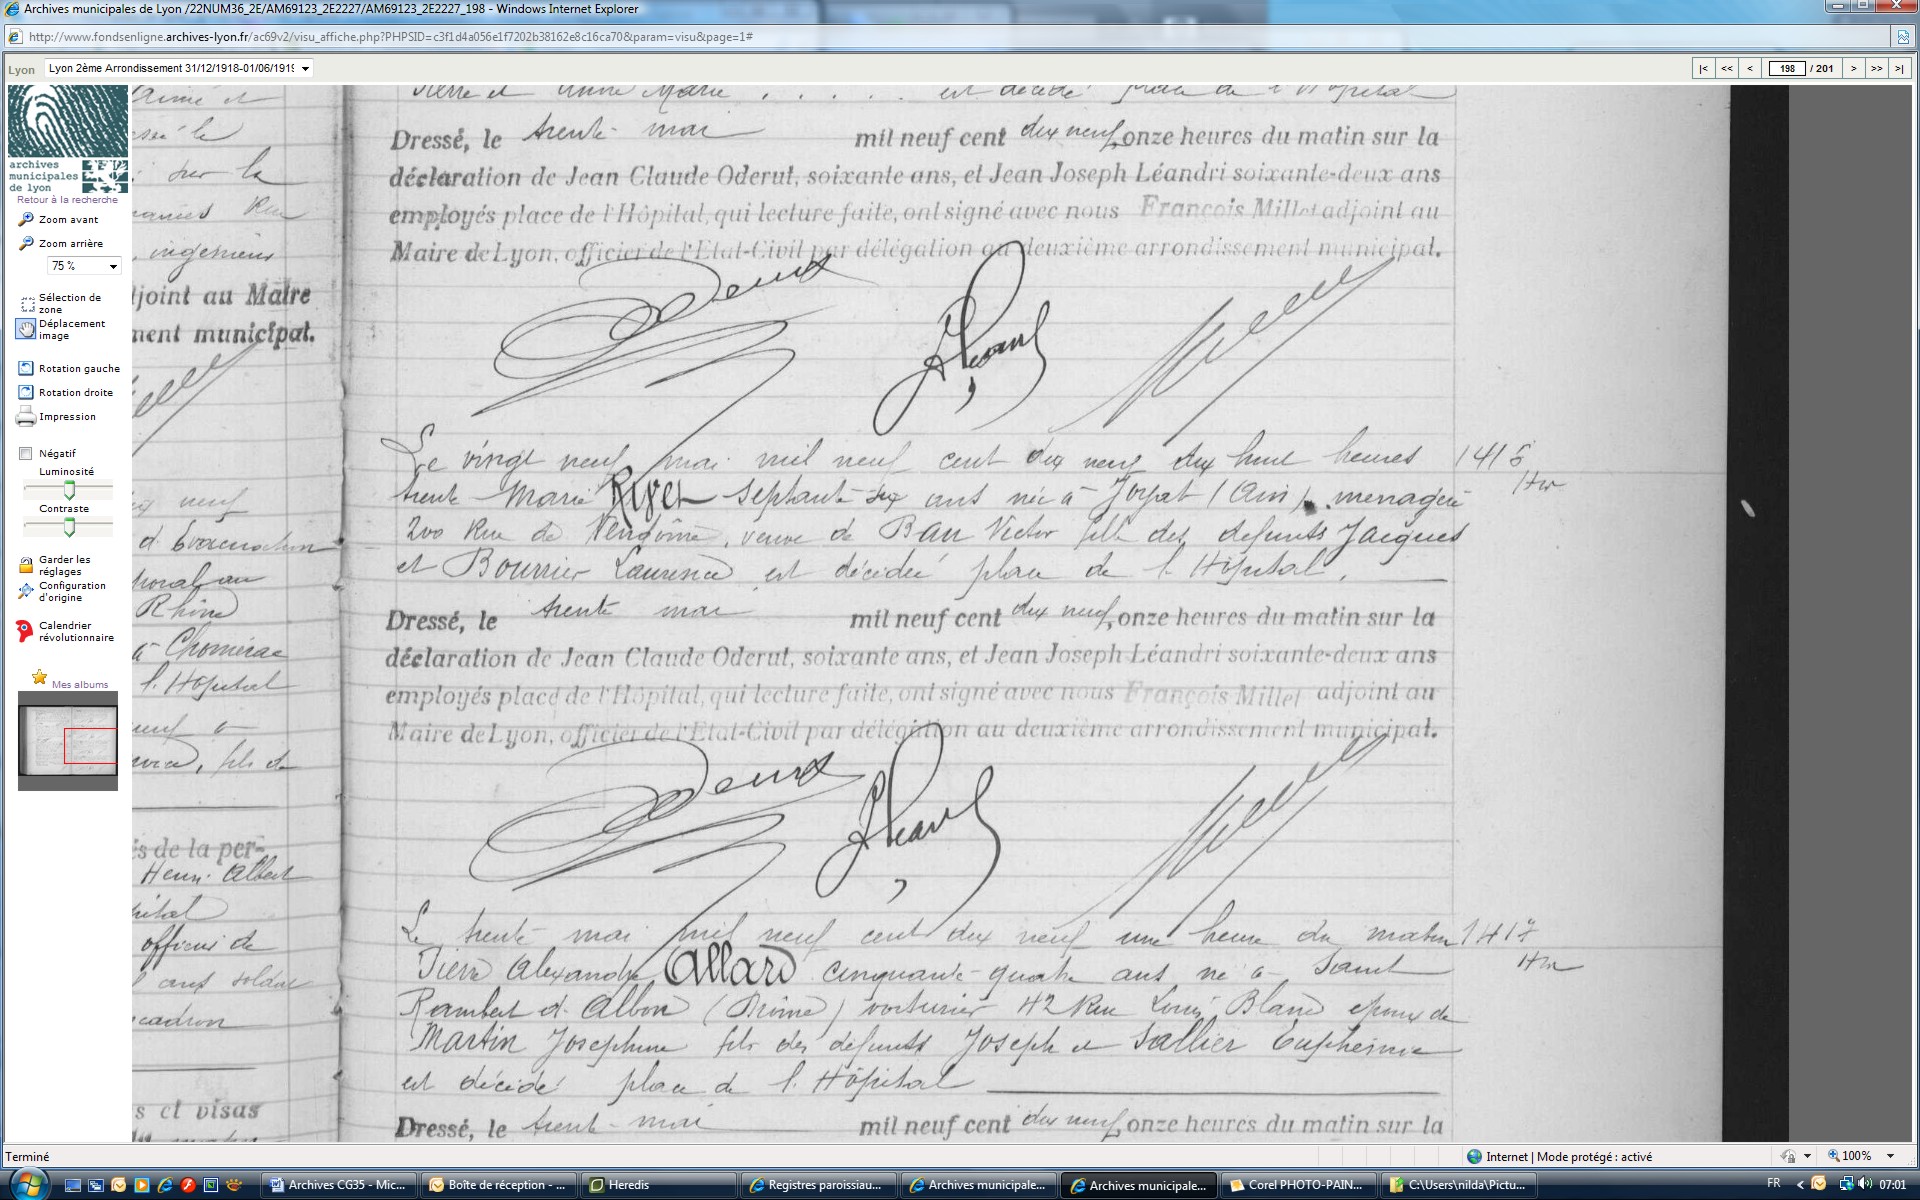 Archives municipales de Lyon /22NUM36_2E/AM69123_2E2227/AM69123_2E2227_198 - Windows Internet Explorer
http://www.fondsenligne.archives-lyon.fr/ac69v2/visu_affiche.php?PHPSID=c3f1d4a056e1f7202b38162e8c16ca70&param=visu&page=1#
Lyon Lyon 2ème Arrondissement 31/12/1918-01/06/1919
|< << < 198 / 201 > >> >|
archives
municipales
de lyon
Retour à la recherche
Zoom avant
Zoom arrière
75 %
Sélection de
zone
Déplacement
image
Rotation gauche
Rotation droite
Impression
Négatif
Luminosité
Contraste
Garder les
réglages
Configuration
d'origine
Calendrier
révolutionnaire
Mes albums
sur la
ingénieur
joint au Maire
ment municipal.
neuf
d'Evacuation
Rhône
à Chomérac
l'Hôpital
fils de
s de la per-
Henri Albert
officier de
ans soldat
s et visas
Pierre et Anne Marie . . . . . est décédé place de l'Hôpital
Dressé, le trente mai mil neuf cent dix neuf, onze heures du matin sur la
déclaration de Jean Claude Oderut, soixante ans, et Jean Joseph Léandri soixante-deux ans
employés place de l'Hôpital, qui lecture faite, ont signé avec nous François Millet adjoint au
Maire de Lyon, officier de l'Etat-Civil par délégation au deuxième arrondissement municipal.
Le vingt neuf mai mil neuf cent dix neuf dix huit heures 1416
trente Marie Rivet septante six ans née à Joyat (Ain), ménagère
200 Rue de Vendôme, veuve de Ban Victor fille des défunts Jacques
et Bourrier Laurence est décédée place de l'Hôpital.
Dressé, le trente mai mil neuf cent dix neuf, onze heures du matin sur la
déclaration de Jean Claude Oderut, soixante ans, et Jean Joseph Léandri soixante-deux ans
employés place de l'Hôpital, qui lecture faite, ont signé avec nous François Millet adjoint au
Maire de Lyon, officier de l'Etat-Civil par délégation au deuxième arrondissement municipal.
Le trente mai mil neuf cent dix neuf une heure du matin 1417
Pierre Alexandre Allard cinquante-quatre ans né à Saint
Rambert d'Albon (Drôme) voiturier 42 Rue Louis Blanc époux de
Martin Joséphine fils des défunts Joseph et Sallier Euphémie
est décédé place de l'Hôpital
Dressé, le trente mai mil neuf cent dix neuf, onze heures du matin sur la
Terminé
Internet | Mode protégé : activé
100%
Archives CG35 - Mic...
Boîte de réception - ...
Heredis
Registres paroissiau...
Archives municipale...
Archives municipale...
Corel PHOTO-PAIN...
C:\Users\nilda\Pictu...
FR
07:01